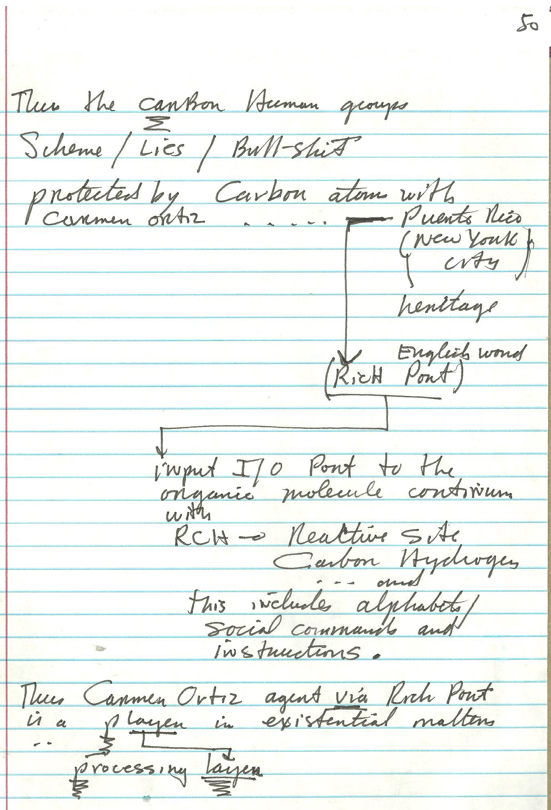 50
Thus the carbon Human groups
Scheme / Lies / Bull-shit
protected by Carbon atom with
Carmen Ortiz ..... Puerto Rico
(New York
City)
heritage
English word
(RicH Port)
input I/O Port to the
organic molecule continuum
with
RCH → Reactive Site
Carbon Hydrogen
... and
this includes alphabets/
social commands and
instructions.
Thus Carmen Ortiz agent via Rich Port
is a player in existential matters
..
processing layer